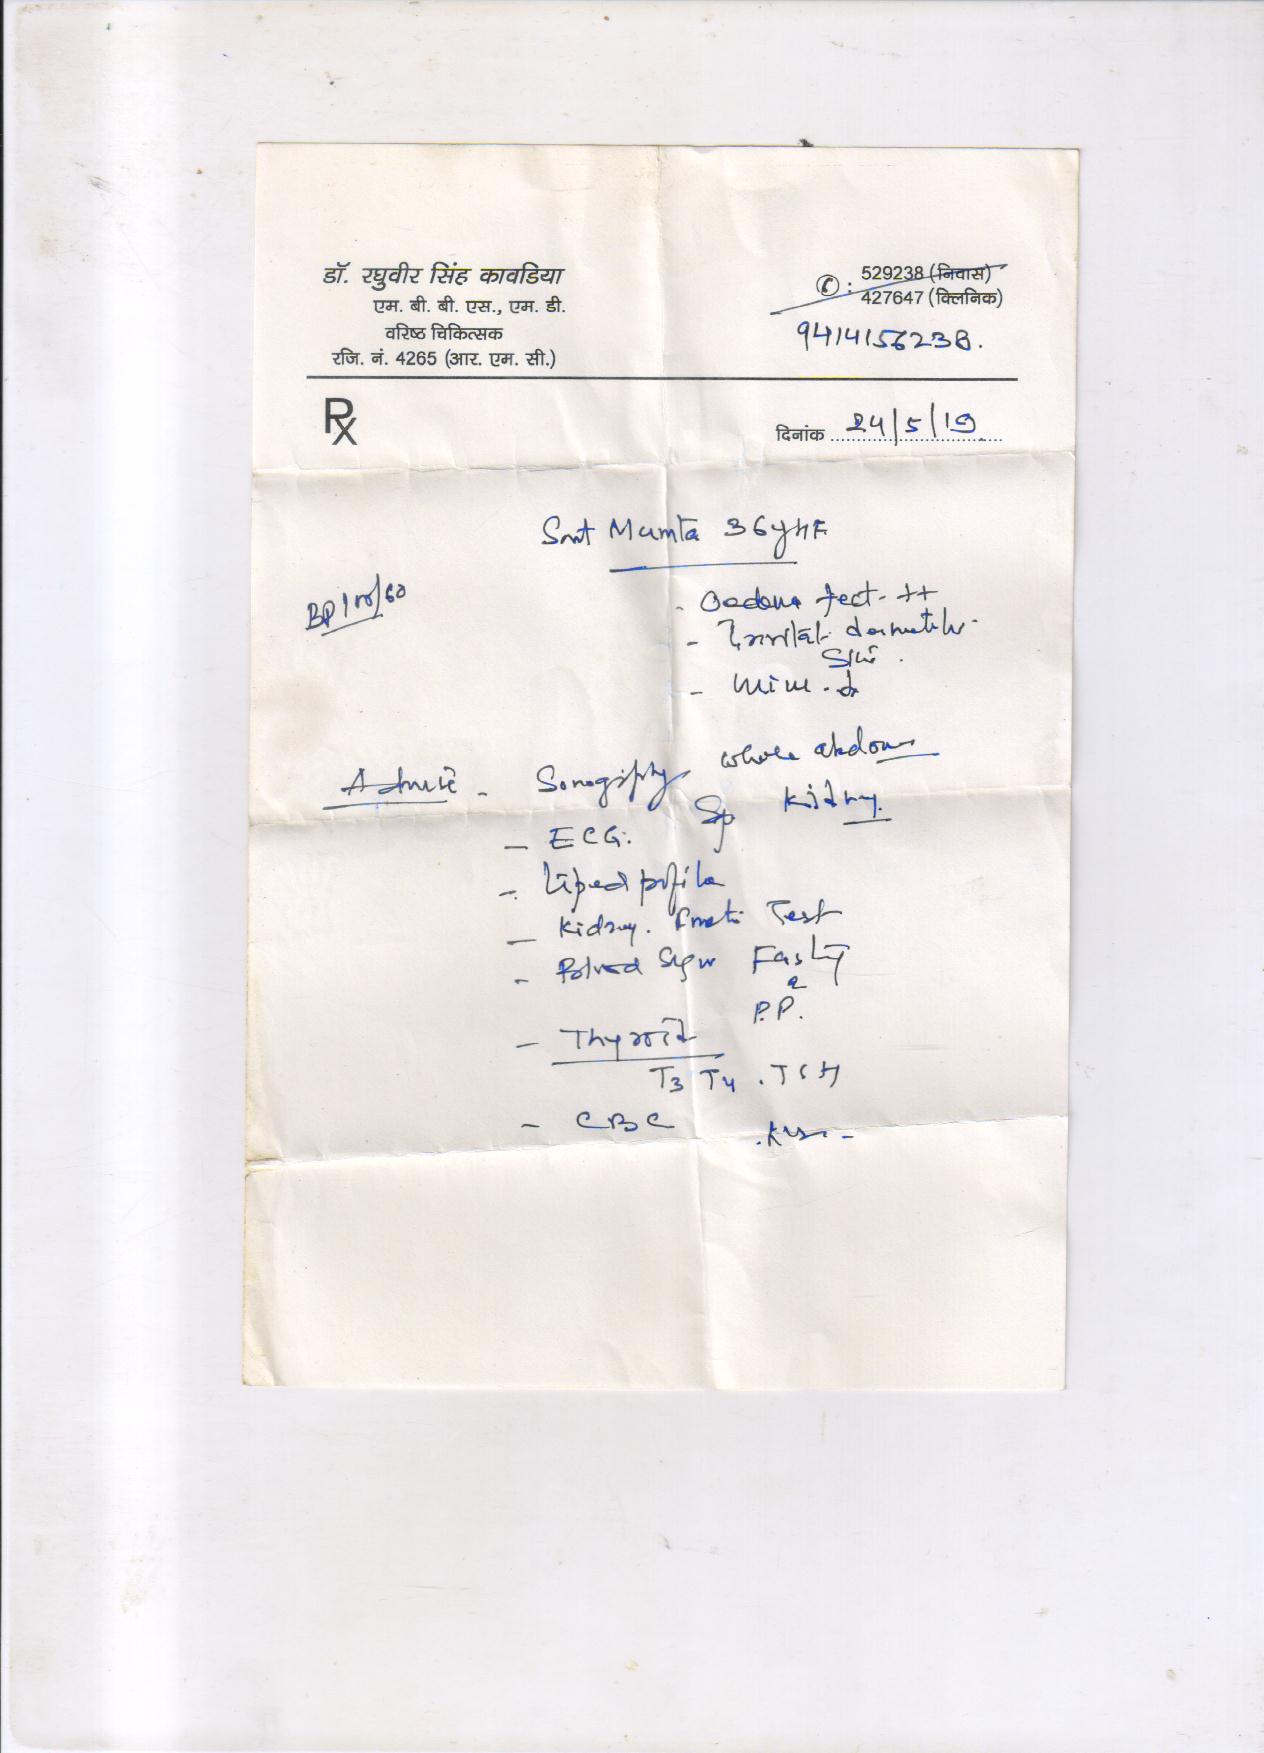 डॉ. रघुवीर सिंह कावडिया
एम. बी. बी. एस., एम. डी.
वरिष्ठ चिकित्सक
रजि. नं. 4265 (आर. एम. सी.)
529238 (निवास)
427647 (क्लिनिक)
9414156238.
Rx
दिनांक 24/5/19
Smt Mamta 36yrF
BP 100/60
- Oedema feet - ++
Skin.
Advice - Sonography whole abdomen
Sp Kidney
- ECG.
- Lipid profile
- Kidney. Function Test
- Blood Sugar Fasting
&
P.P.
- Thyroid
T3 T4 . TSH
- CBC